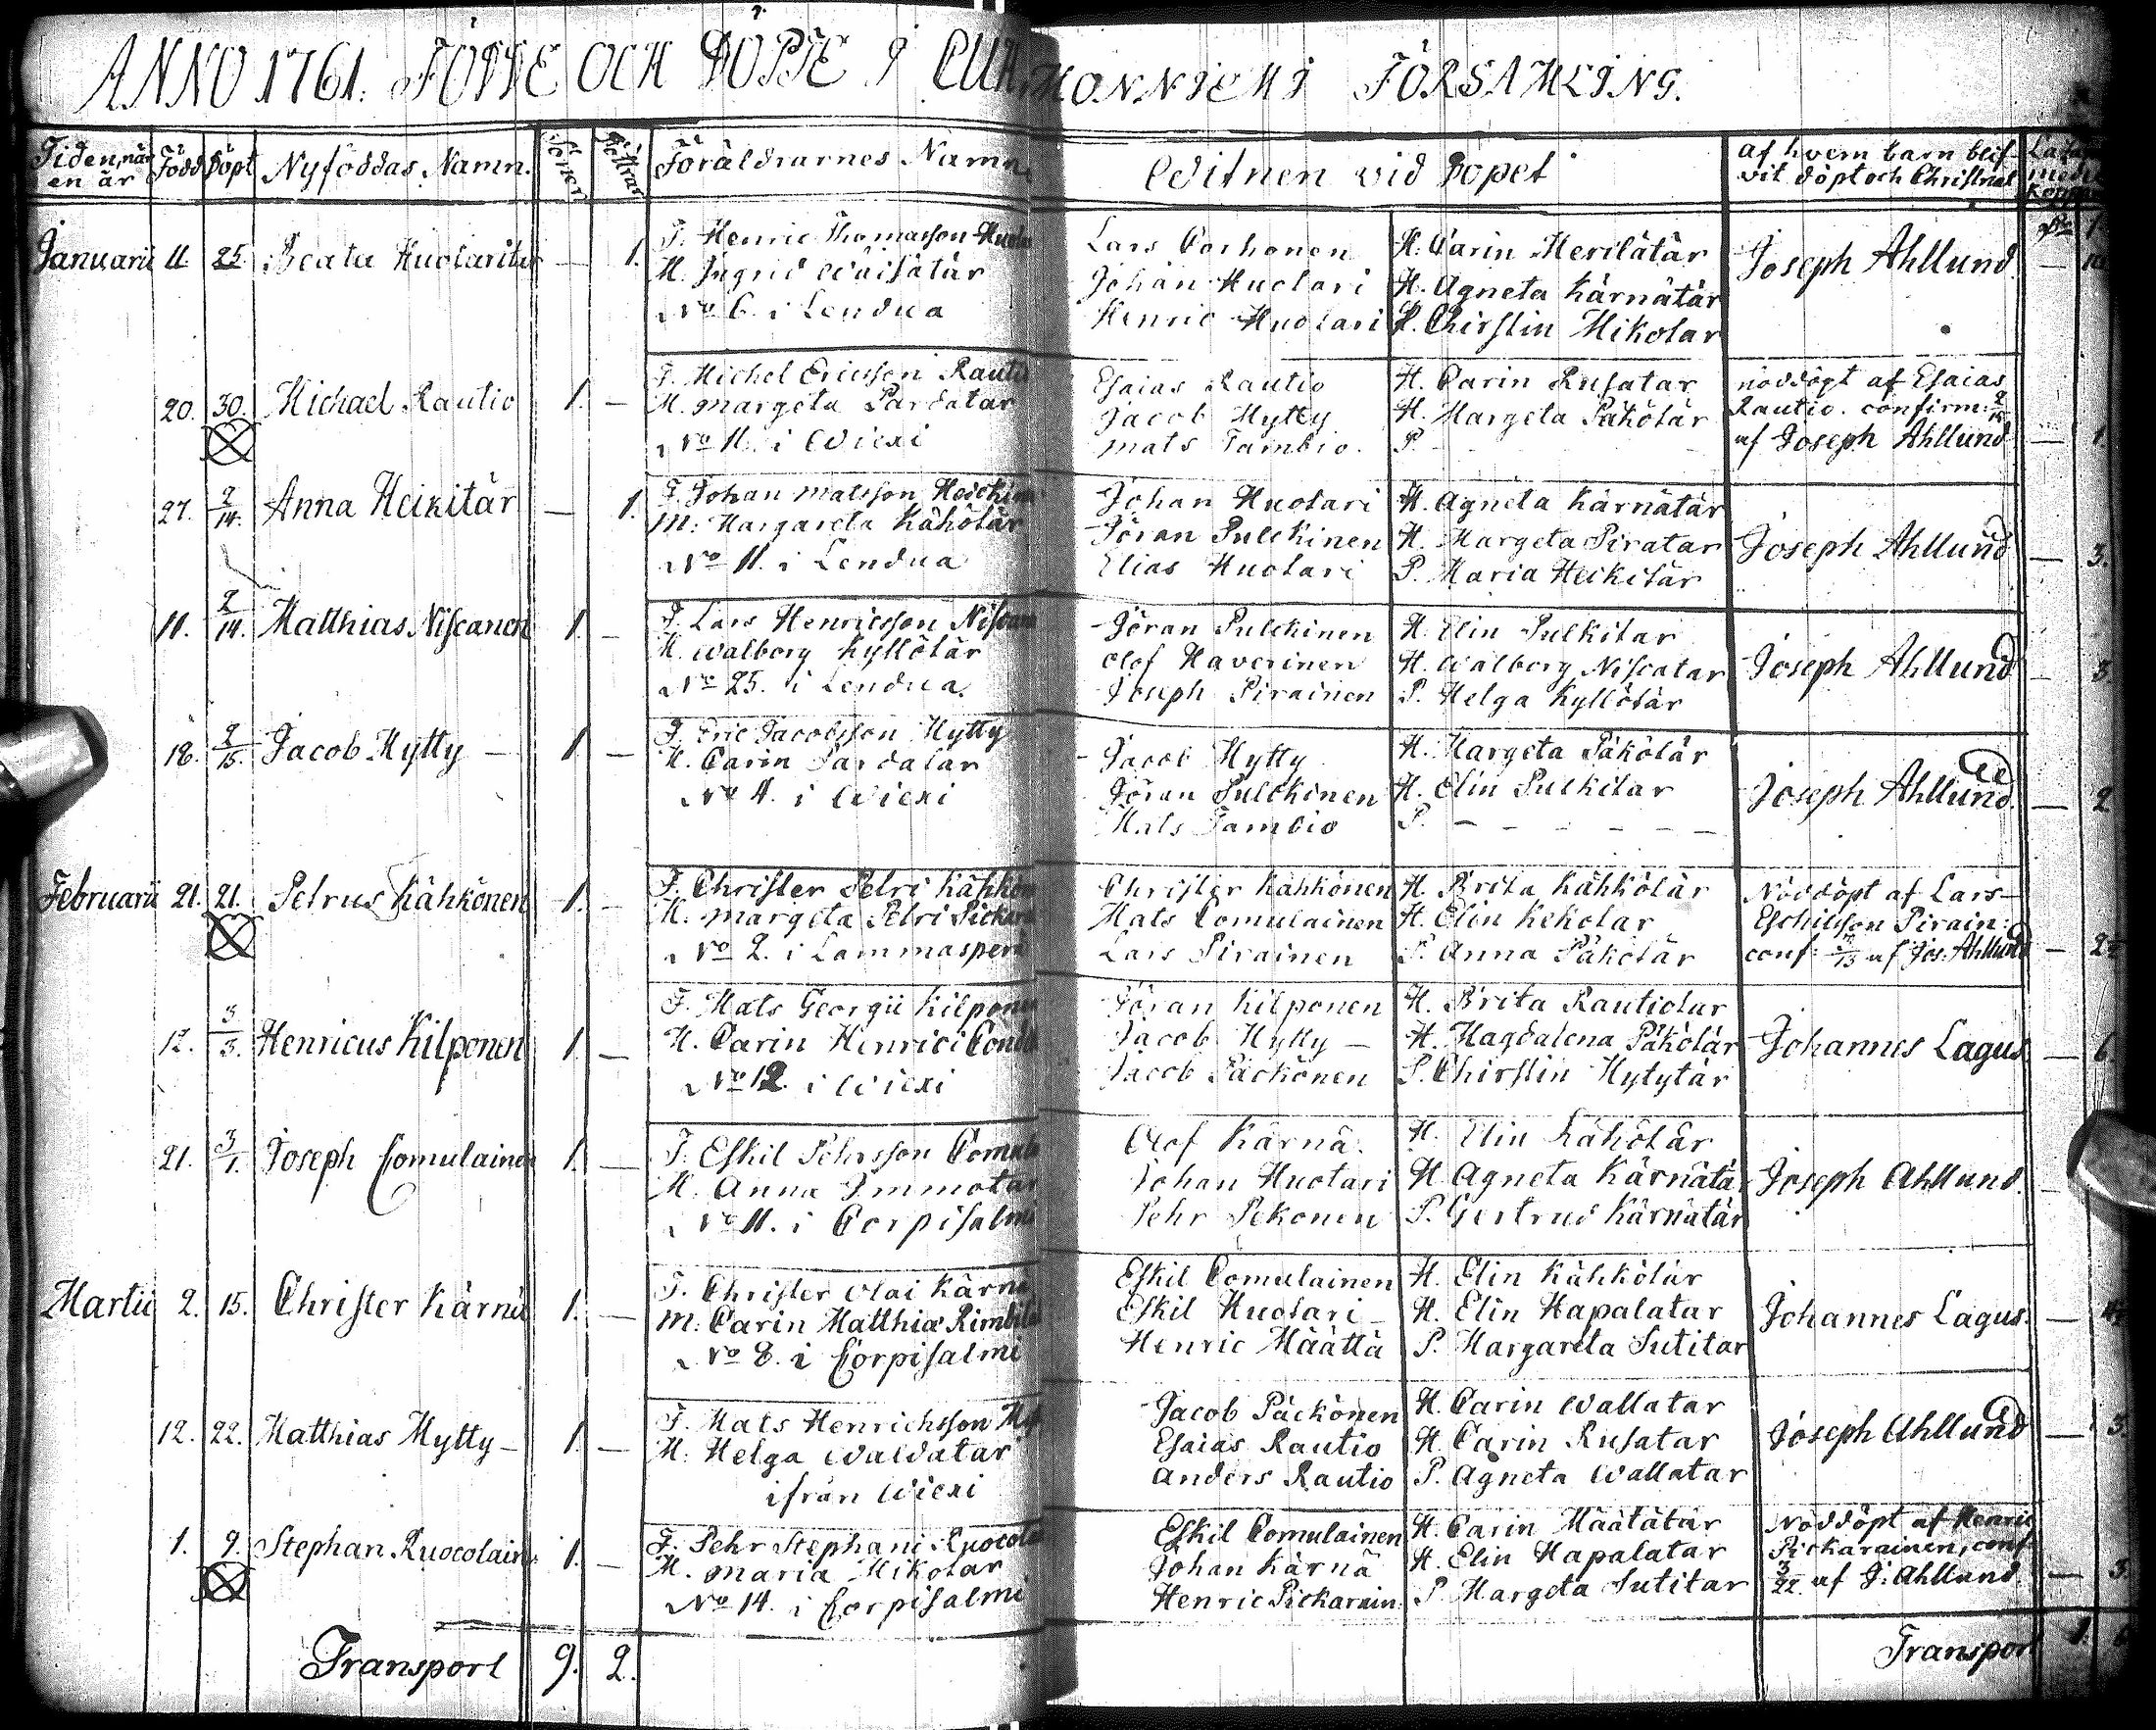 ANNO 1761. FÖDDE OCH DÖPTE I CUHMONNIEMI FÖRSAMLING.
Tiden, när en är Född Döpt Nyföddas Namn. Söner Döttrar Föräldrarnes Namn Witnen vid Dopet af hvem barn blifvit döpt och Christnat
Januarii 11 25. Beata Huolaritar — 1. F. Henric Thomasson Huola Lars Corhonen H. Carin Merilätär Joseph Ahllund
M. Ingrid Wäisätär Johan Huolari H. Agneta Kärnätär
No 6. i Lendua Henric Huolari P. Chirstin Mikolar
F. Michel Ericsson Rautio Esaias Rautio H. Carin Rusatar nöddöpt af Esaias
20. 30. Michael Rautio 1. — M. margeta Pardatar Jacob Hytty H. Margeta Päkötär Rautio. confirm: 2/15
No 11. i Wiexi mats Tambio. P. af Joseph Ahllund — 1.
27. 2/14. Anna Heikitär — 1. F. Johan matsson Heickin Johan Huolari H. Agneta Kärnätär
M: Margareta Kähötär Jöran Pulckinen H. Margeta Piratar Joseph Ahllund — 3.
No 11. i Lendua Elias Huolari P. Maria Heikitär
11. 2/14. Matthias Niscanen 1. — F. Lars Henricsson Niscan Jöran Pulckinen H. Elin Pulkitar
M. Walborg Kyllötär Olof Haverinen H. Walborg Niscatar Joseph Ahllund
No 25. i Lendua. Joseph Pirainen P. Helga Kyllötär
18. 2/15. Jacob Hytty — 1. — F. Eric Jacobsson Hytty Jacob Hytty H. Margeta Päkötär
M. Carin Pardatar Jöran Pulckinen H. Elin Pulkitar Joseph Ahllund. — 2
No 4. i Wiexi Mats Tambio P. — — — — —
Februarii 21. 21. Petrus Kähkönen 1. — F. Christer Petri Kähkön Christer Kähkönen H. Brita Kähkötär Nöddöpt af Lars
M. margeta Petri Pickar Mats Comulainen H. Elin Kekolar Eschilsson Pirain:
No 2. i Lammasperä Lars Pirainen P. Anna Päkötär conf: af Jos: Ahllund
12. 3/3. Henricus Kilponen 1. — F. Mats Georgii Kilponen Jöran Kilponen H. Brita Rautiotar
M. Carin Henrici Jacob Hytty — H. Magdalena Päkötär Johannes Lagus — 6
No 12. i Wiexi Jacob Päckönen P. Chirstin Hytytär
21. 3/1. Joseph Comulainen 1. — F. Eskil Pehrsson Comula Olof Kärnä. H. Elin Kähötär
M. Anna Immotar Johan Huotari H. Agneta Kärnätär Joseph Ahllund.
No 11. i Corpisalmi Pehr Pekonen P. Gertrud Kärnätär
Martii 2. 15. Christer Kärnä 1. — F. Christer Olai Kärnä Eskil Comulainen H. Elin Kähkötär
M: Carin Matthiæ Eskil Huotari — H. Elin Hapalatar Johannes Lagus. —
No 8. i Corpisalmi Henric Määttä P. Margareta Sutitar
12. 22. Matthias Hytty — 1. — F. Mats Henrichsson Jacob Päckönen H. Carin Wallatar
M: Helga Waldatar Esaias Rautio H. Carin Rusatar Joseph Ahllund — 3.
ifrån Wiexi Anders Rautio P. Agneta Wallatar
1. 9. Stephan Ruocolain: 1. — F. Pehr Stephani Ruocola Eskil Comulainen H. Carin Määtätär Nöddöpt af Henric
M. maria Mikolar Johan Kärnä H. Elin Hapalatar Pickarainen, conf:
No 14. i Corpisalmi Henric Pickarain. P. Margeta Sutitar 3/22 af J: Ahllund — 3.
Transport 9. 2. Transport 1.